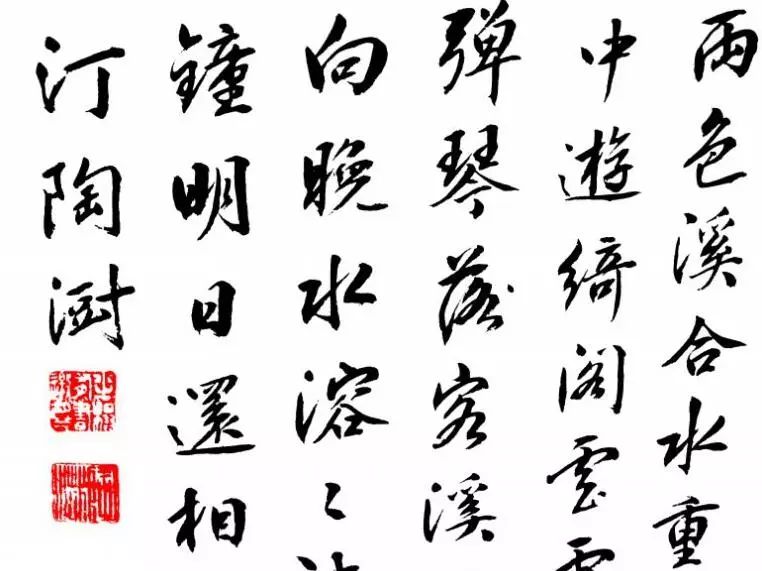 雨色溪合水重
中遊綺阁雲
弹琴落客溪
向晚水溶〻
鐘明日還相
汀陶澍